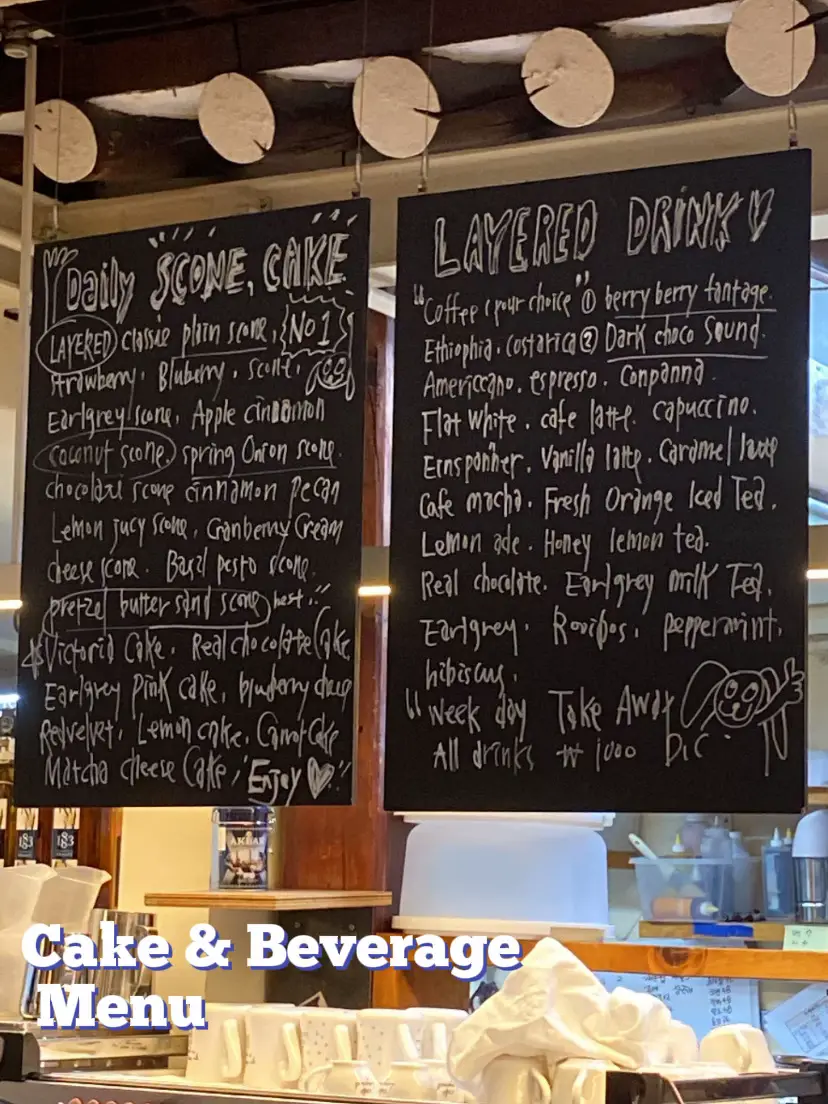 Daily SCONE, CAKE
LAYERED classic plain scone, No 1
strawberry. Bluberry. scone,
Earlgrey scone, Apple cinnamon
coconut scone, spring Onion scone.
chocolate scone cinnamon pecan
Lemon jucy scone, Cranberry Cream
cheese scone. Basil pesto scone.
pretzel butter sand scone best..
Victoria Cake. Real chocolate Cake,
Earlgrey pink cake, blueberry cheese
Redvelvet, Lemon cake, Carrot Cake
Matcha cheese Cake, "Enjoy ♡"
LAYERED DRINK ♡
"Coffee (your choice" ① berry berry fantage.
Ethiophia. costarica ② Dark choco Sound.
Americcano. espresso. Conpanna.
Flat White. cafe latte. capuccino.
Ernspanner. Vanilla latte. Caramel latte
Cafe macha. Fresh Orange Iced Tea.
Lemon ade. Honey lemon tea.
Real chocolate. Earlgrey milk Tea.
Earlgrey. Rooibos. peppermint.
hibiscus.
"Week day Take Away
All drinks ₩ 1000 D.C
183
183
AKBAR
Cake & Beverage
Menu